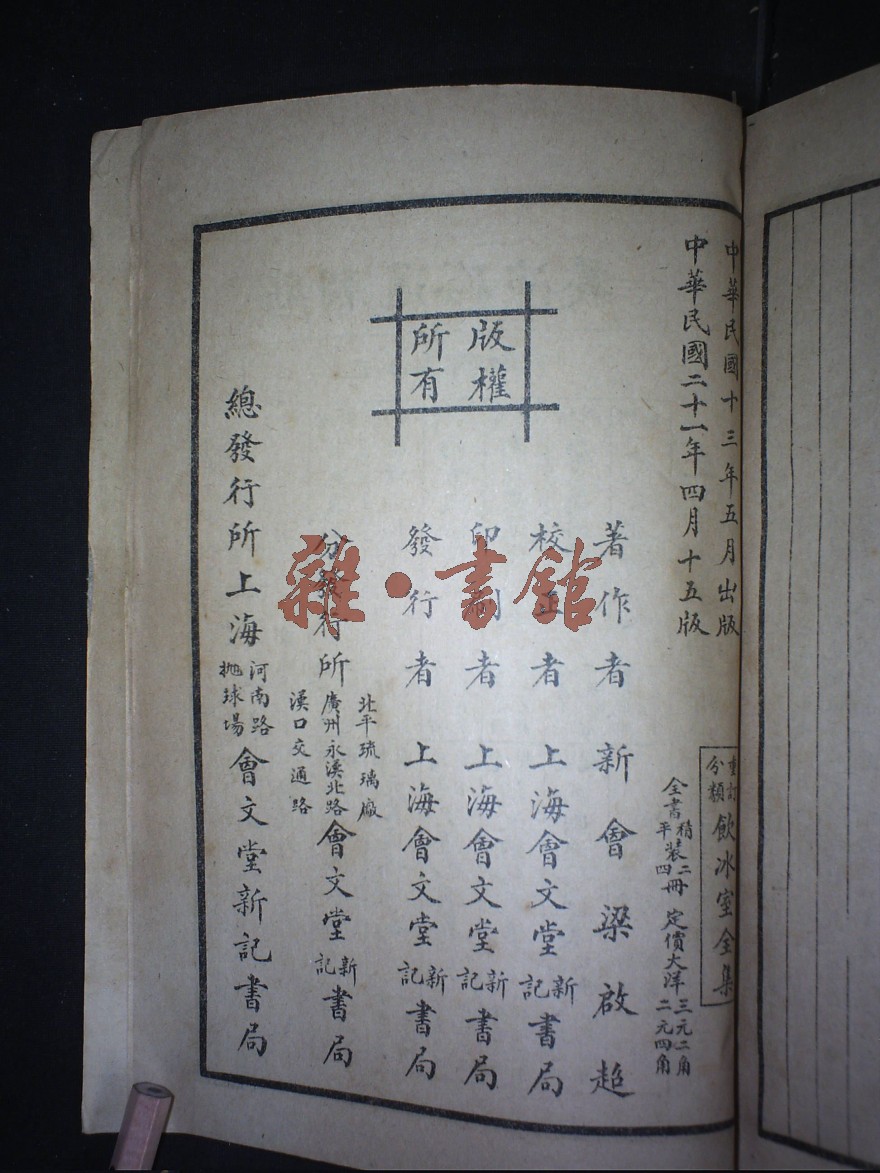 中華民國十三年五月出版
中華民國二十一年四月十五版
重訂
分類
飲冰室全集
全書
精
平
裝
二
四
冊
定價大洋
三元二角
二元四角
著作者 新會梁啟超
校正者 上海會文堂新記書局
印刷者 上海會文堂新記書局
發行者 上海會文堂新記書局
版權
所有
分發行所
北平琉璃廠
廣州永漢北路
漢口交通路
會文堂新記書局
總發行所上海
河南路
拋球場
會文堂新記書局
雜·書館